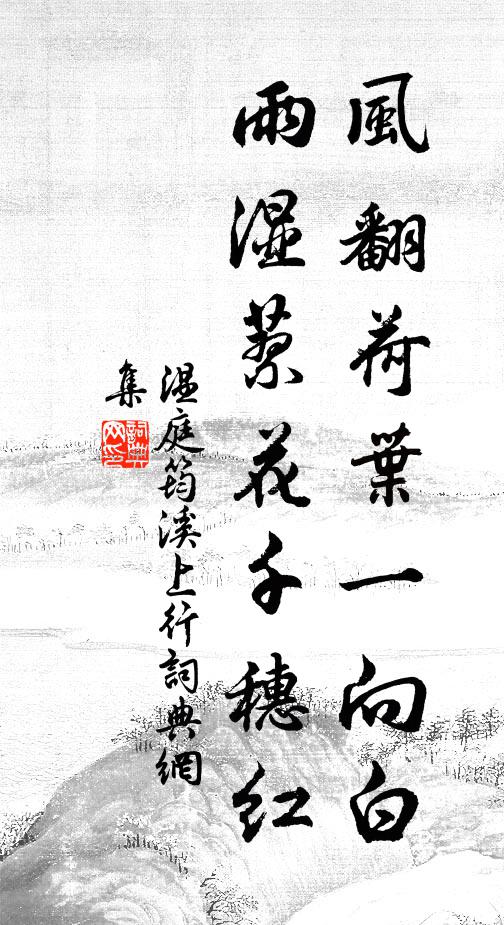 風翻荷葉一向白
雨湿蓼花千穗紅
温庭筠溪上行詞典網
集